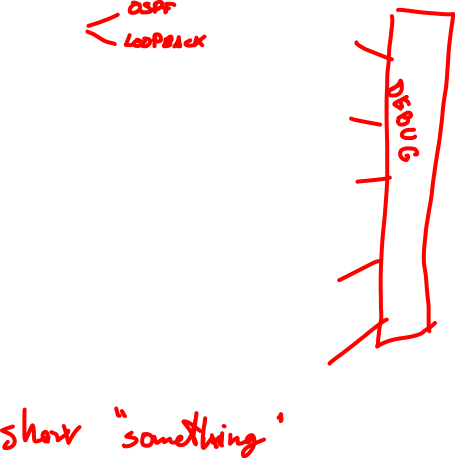 OSPF
LOOPBACK
DEBUG
show "something"